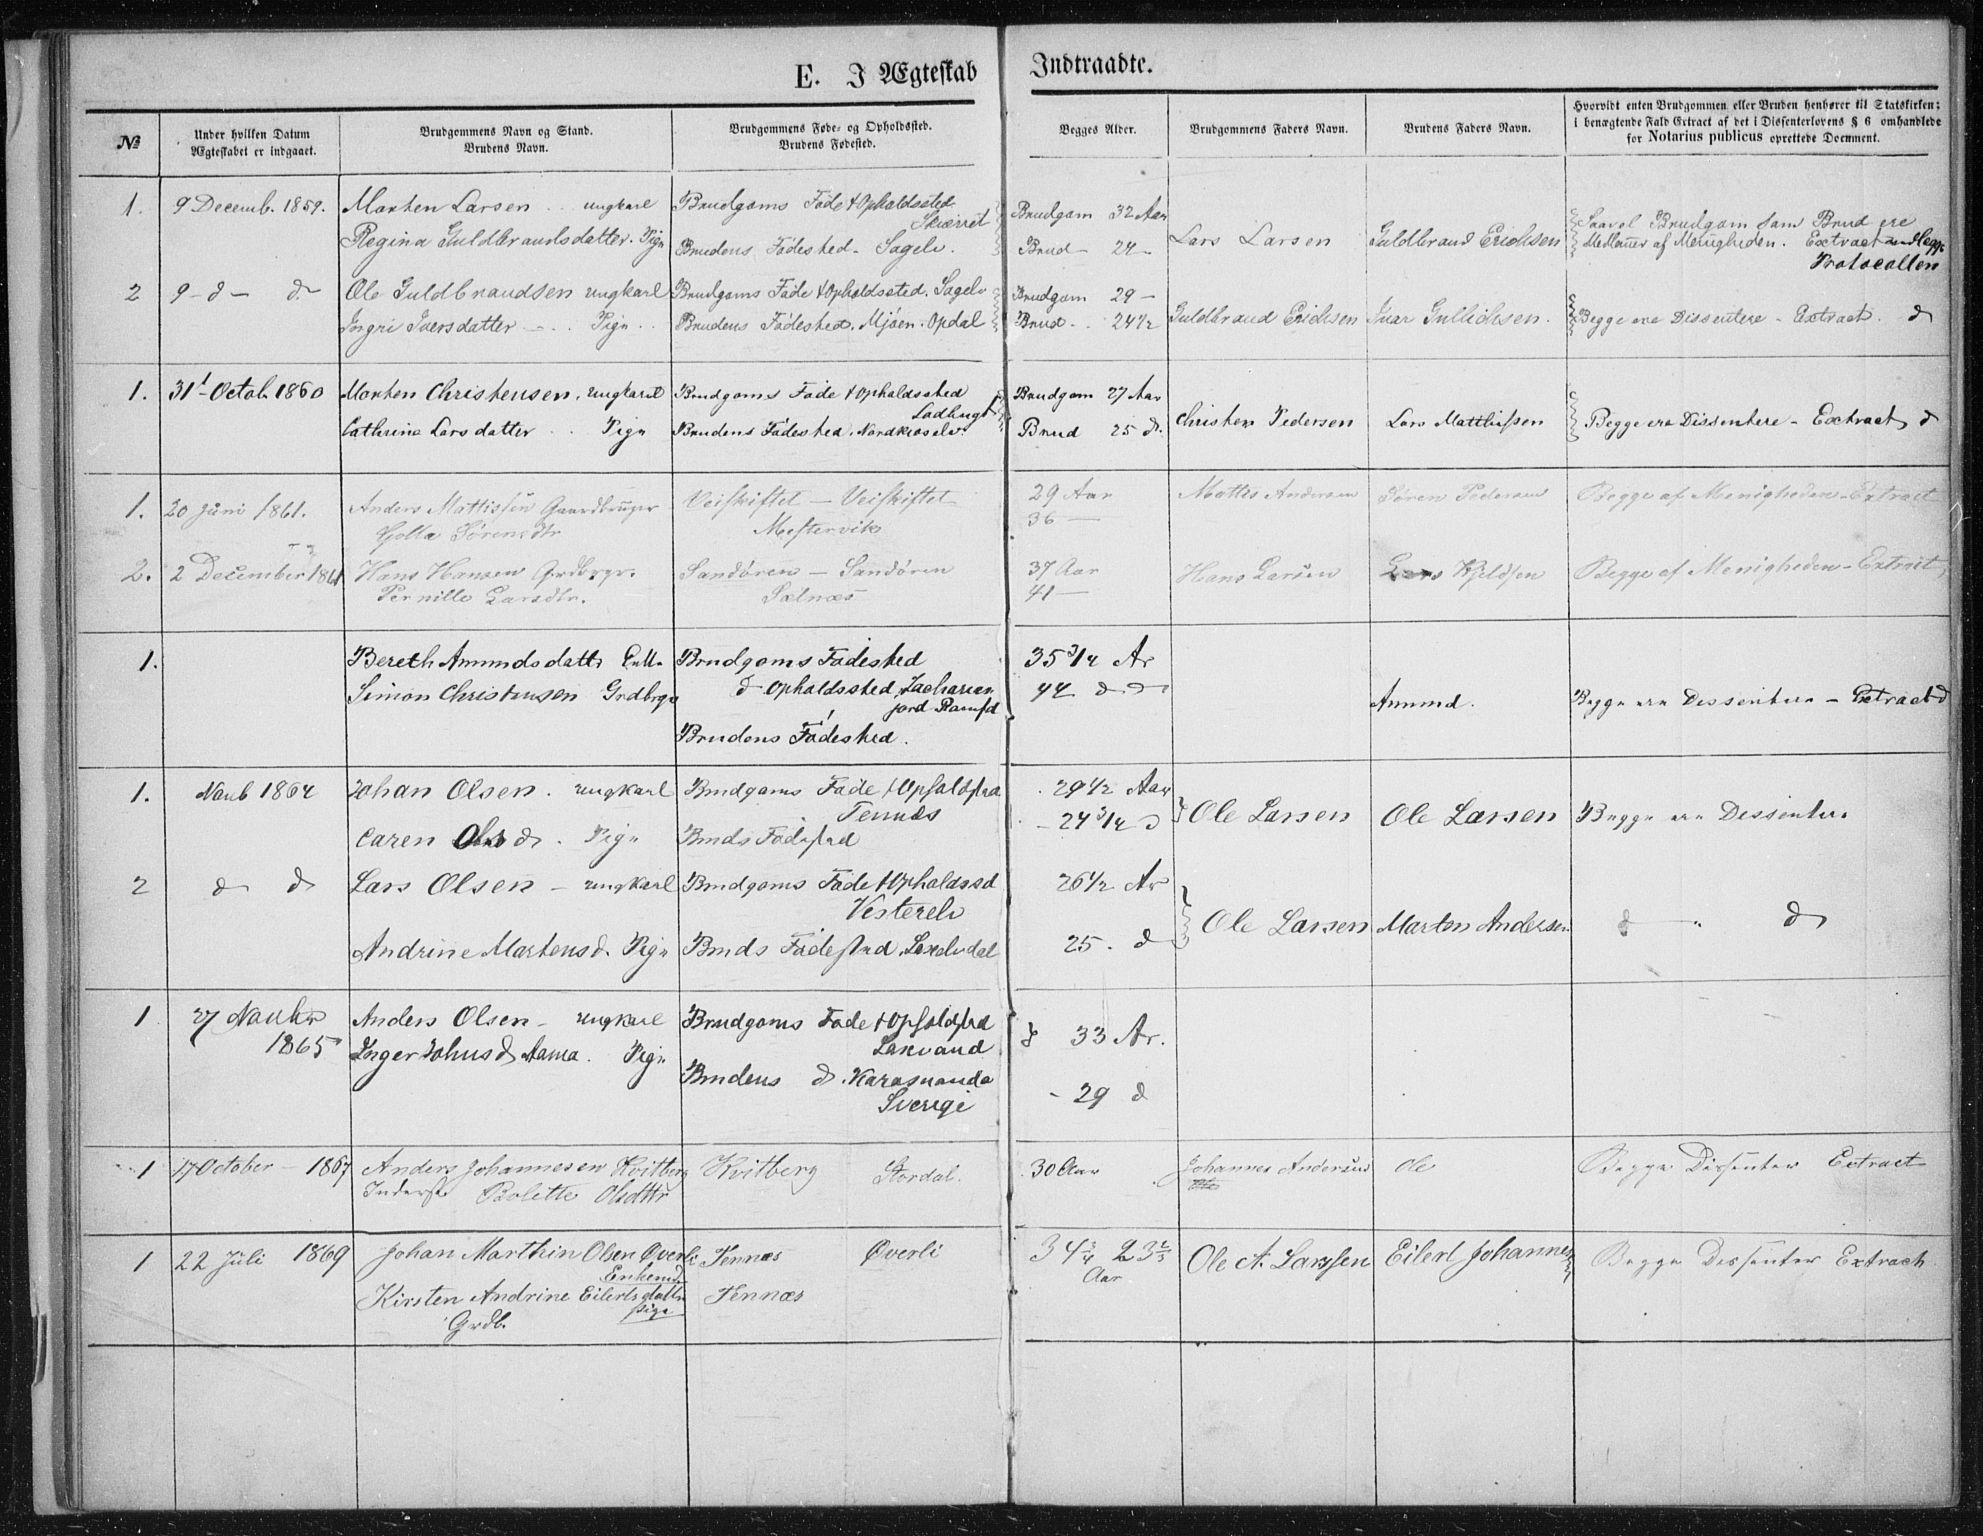 E. I Ægteskab Indtraadte.
№
Under hvilken Datum
Ægteskabet er indgaaet.
Brudgommens Navn og Stand.
Brudens Navn.
Brudgommens Føde- og Opholdssted.
Brudens Fødested.
Begges Alder.
Brudgommens Faders Navn.
Brudens Faders Navn.
Hvorvidt enten Brudgommen eller Bruden henhører til Statskirken;
i benægtende Fald Extract af det i Dissenterlovens § 6 omhandlede
for Notarius publicus oprettede Document.
1. 9 Decemb. 1859. Morten Larsen .. ungkarl Brudgoms Føde & Opholdssted Skiærret Brudgom 32 Aar
Regina Guldbrandsdatter. Pige Brudens Fødested - Sagelv. Brud - 24 - Lars Larsen Guldbrand Erichsen Saavel Brudgom som Brud ere
Medlemer af Menigheden. Extract
Protocollen
2 9 - d - d Ole Guldbrandsen ungkarl Brudgoms Føde & Opholdssted. Sagelv Brudgom 29 -
Ingri Iversdatter - .. Pige .. Brudens Fødested. Mjöen. Opdal Brud - 24 1/2 Guldbrand Erichsen Ivar Gullichsen. Begge ere Dissentere - Extract. d
1. 31t Octob 1860 Morten Christensen. ungkarl Brudgoms Føde & Opholdssted Brudgom 27 Aar
Cathrina Larsdatter .. Pige Brudens Fødested. Nordkioselv. Brud 25 d. Christen Pedersen Lars Matthissen Begge ere Dissentere - Extract d
1. 20 Juni 1861. Anders Mattissen Gaardbruger Veiskiftet - Veiskiftet 29 Aar Mattis Andersen Sören Pedersen Begge af Menigheden - Extract
Golla Sörensdtr Mestervik 36 -
2. 2 December 1861 Hans Hansen Grdbrgr. Sandören - Sandören 37 Aar Hans Larsen Lars Kjeldsen Begge af Menigheden - Extract,
Pernille Larsdtr. Sælnæs 41 -
1. Bereth Amundsdatt Enke Brudgoms Fødested 35 3/4 Ar
Simon Christensen Grdbrgr d Opholdssted, Zacharias 44 d d Amund. Begge ere Dissentere - Extract d
jord Ramfd
Brudens Fødested.
1. Novb 1864 Johan Olsen. ungkarl Brudgoms Føde & Opholdsted . 29 1/2 Aar
Tennæs
Caren Ols d. Pige Bruds Fødested - 24 3/4 d Ole Larsen Ole Larsen Begge ere Dissentere
2 d d Lars Olsen - ungkarl Brudgoms Føde & Opholdssd 26 1/2 Ar
Vesterelv
Ole Larsen Morten Andersen d " d
Andrine Mortensd. Pige Bruds Fødested. Laxelvdal 25. d
1 27 Novbr Anders Olsen - ungkarl Brudgoms Føde & Opholdsted 33 Ar.
1865 Inger Johnsd Aama. Pige Laxvand
Brudens d. Karasuando - 29 d
Sverige
1 17 October - 1867 Anders Johannesen Kvitberg Kvitberg Stordal. 30 Aar Johannes Andersen Ole Begge Dissenter Extract
Inderst Bolette Olsdttr
1 22 Juli 1869 Johan Marthin Olsen Øverli Tennæs Øverli 34 3/4 23 2/3 Ole A. Larssen Eilert Johannes Begge Dissenter Extract
Enkemd Aar
Kirsten Andrine Eilertsdatter Tennæs
Grdb. Pige